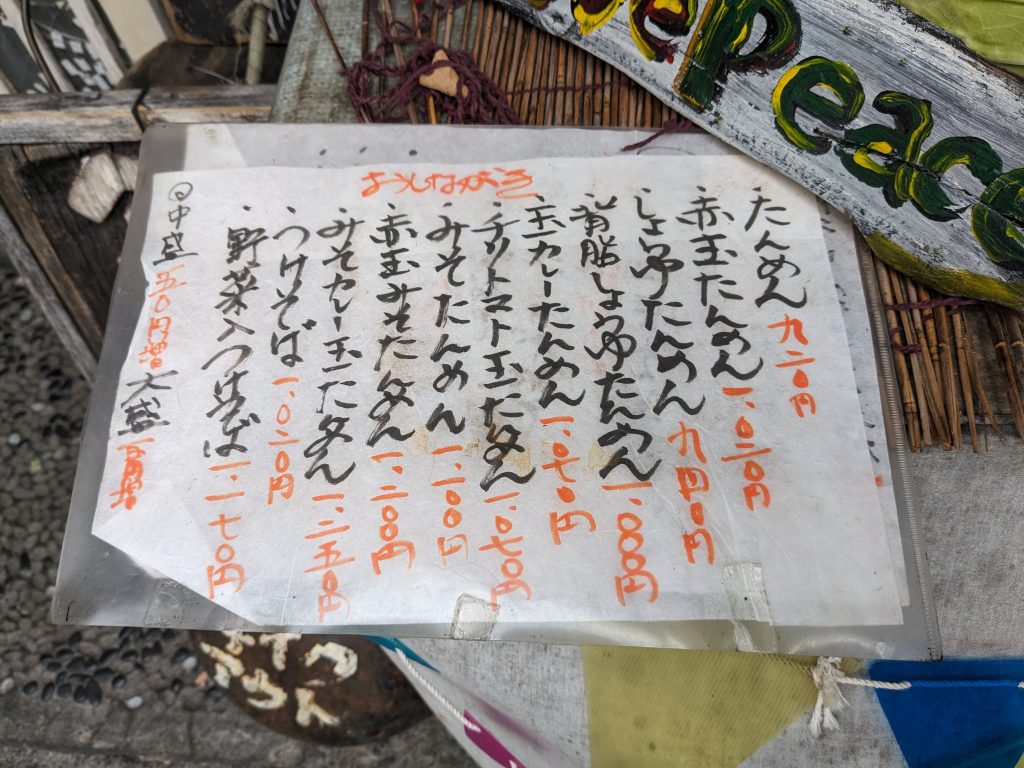 Peace
おしながき
・たんめん 九二〇円
・赤玉たんめん 一、〇二〇円
・しょうゆたんめん 九四〇円
・背脂しょうゆたんめん 一、〇〇〇円
・玉カレーたんめん 一、〇七〇円
・チリトマト玉たんめん 一、〇七〇円
・みそたんめん 一、一〇〇円
・赤玉みそたんめん 一、二〇〇円
・みそカレー玉たんめん 一、二五〇円
・つけそば 一、〇二〇円
・野菜入つけそば 一、一七〇円
中盛 五〇円増 大盛